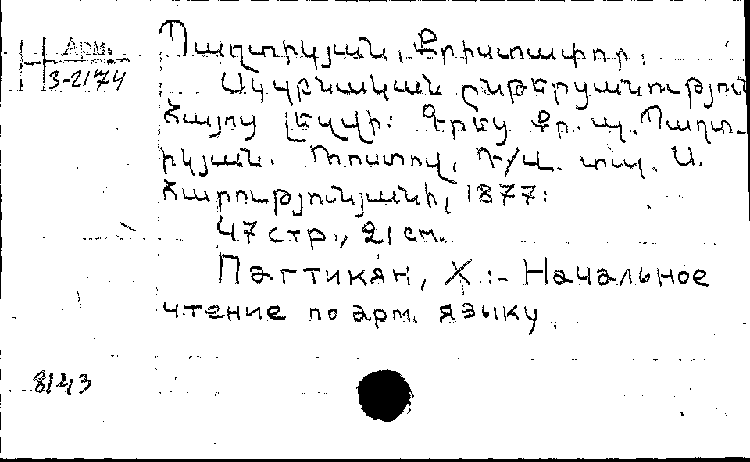 Н Арм.
3-2174
Պաղտիկյան, Քրիստափոր,
Սկզբնական ընթերցանություն
Հայոց լեզվի: Գրեց Քր. ավ. Պաղտ-
իկյան. Ռոստով, Դ/Վ. տպ. Ս.
Հարությունյանի, 1877:
47 стр., 21 см.
Пагтикян, Х.:- Начальное
чтение по арм. языку
8143